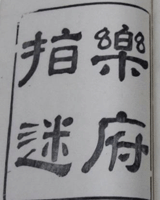 樂府
指迷